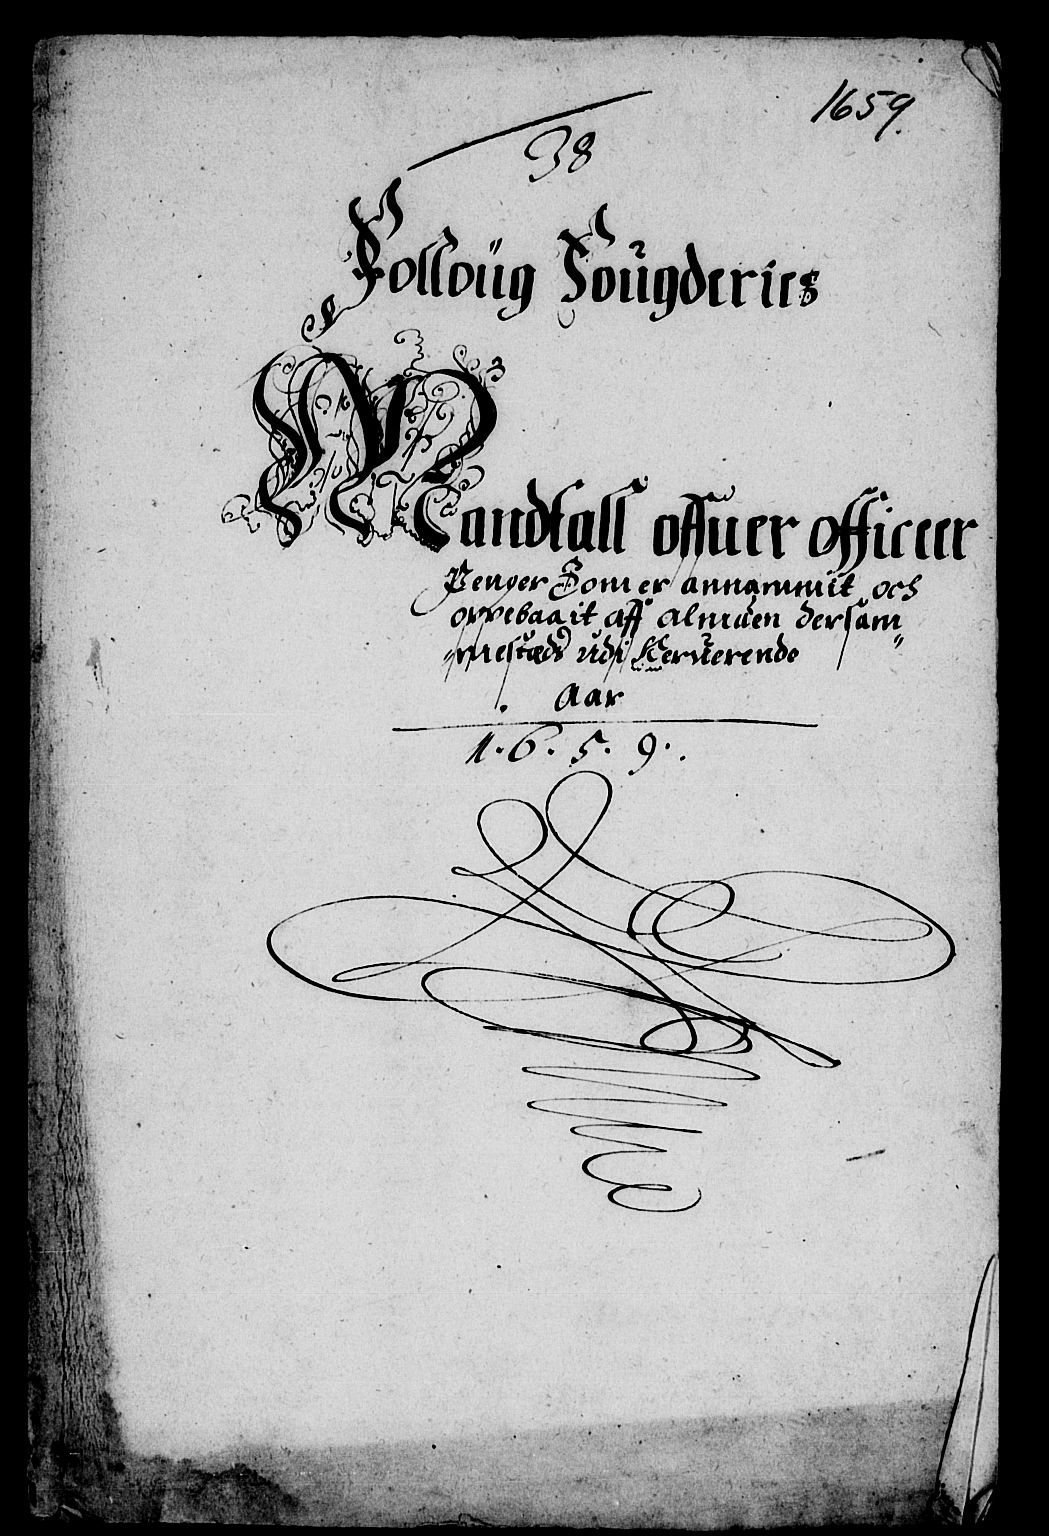 1659.
38
Folloüg Foŭgderies
Mandtall offuer officeer
Penger Som er annammit och
oppebaait aff almŭen dersam„
„mestæds ŭdi Nerŭerende
Aar
1. 6. 5. 9.